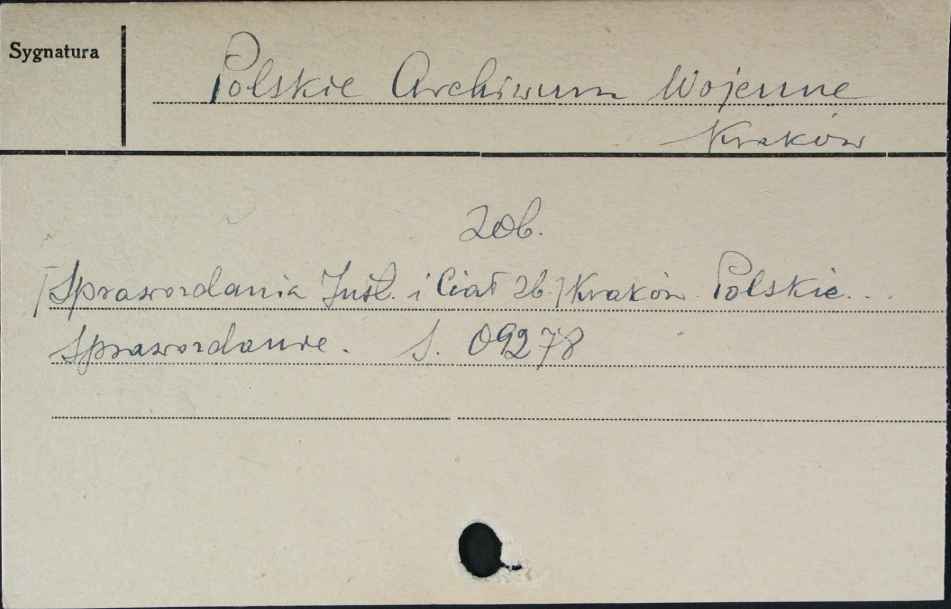 Sygnatura
Polskie Archiwum Wojenne
Kraków
Zob.
[Sprawozdania Inst. i Ciał zb.] Kraków. Polskie...
Sprawozdanie. S. 09278